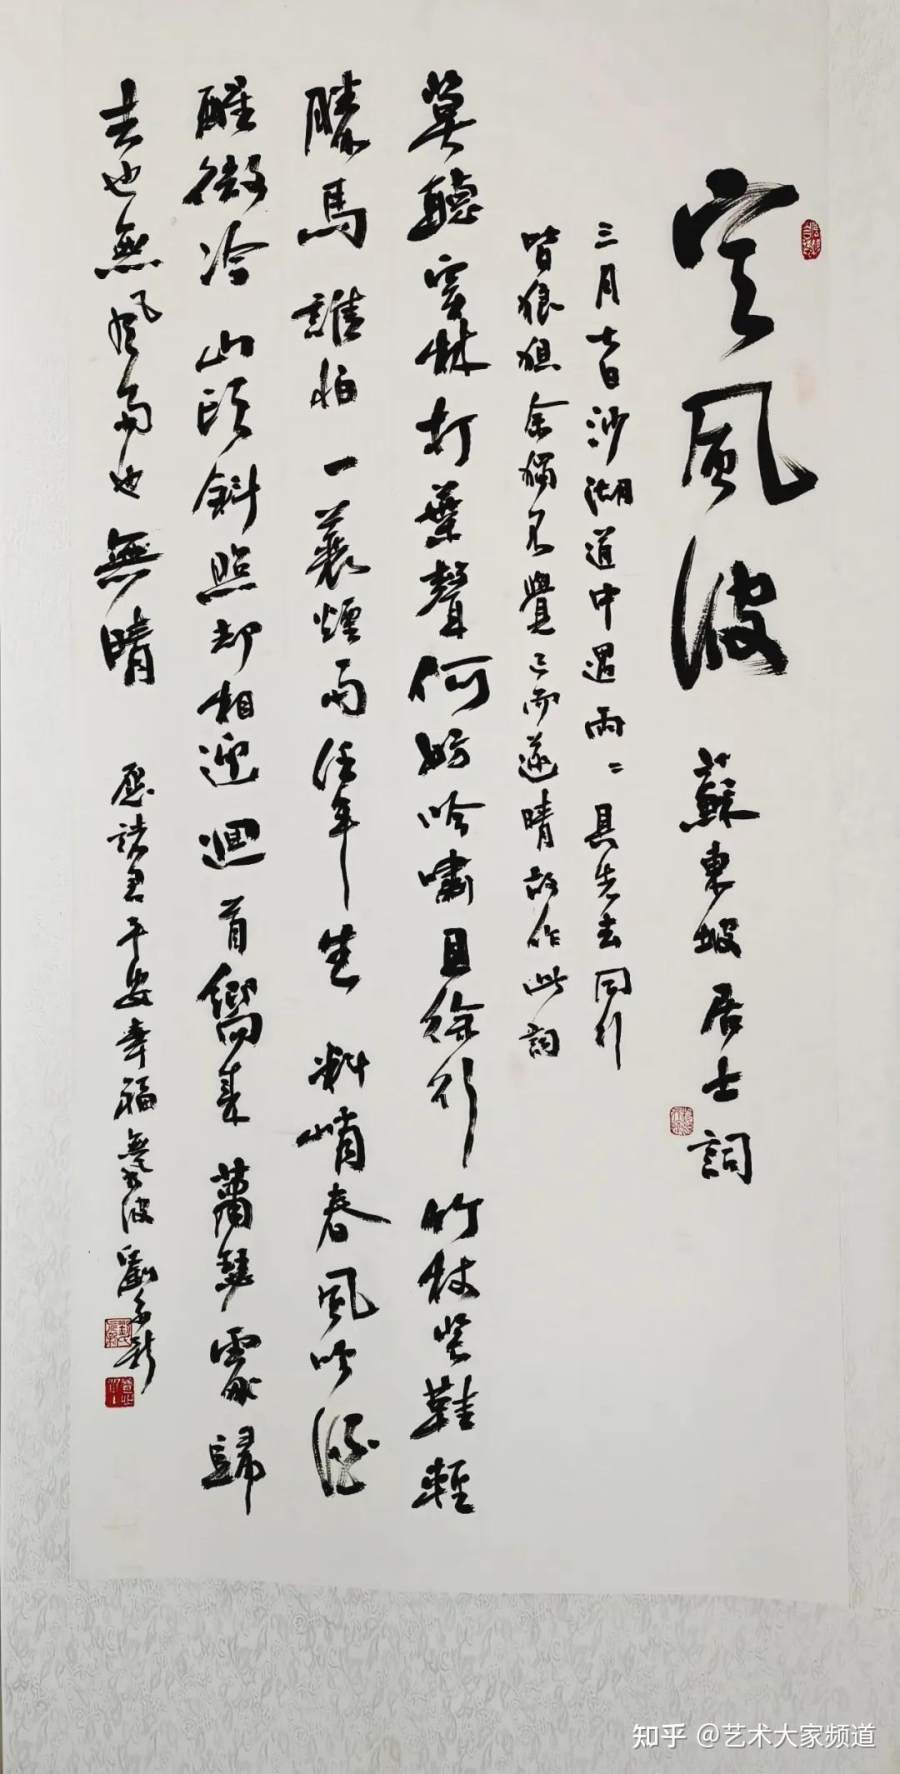 定風波 蘇東坡居士詞
三月七日沙湖道中遇雨〻具先去同行
皆狼狽余獨不覺已而遂晴故作此詞
莫聽穿林打葉聲何妨吟嘯且徐行 竹杖芒鞋輕
勝馬 誰怕 一蓑煙雨任平生 料峭春風吹酒
醒微冷 山頭斜照却相迎 迴首嚮來蕭瑟處歸
去也無風雨也無晴 愿諸君平安幸福無風波 劉
知乎 @艺术大家频道